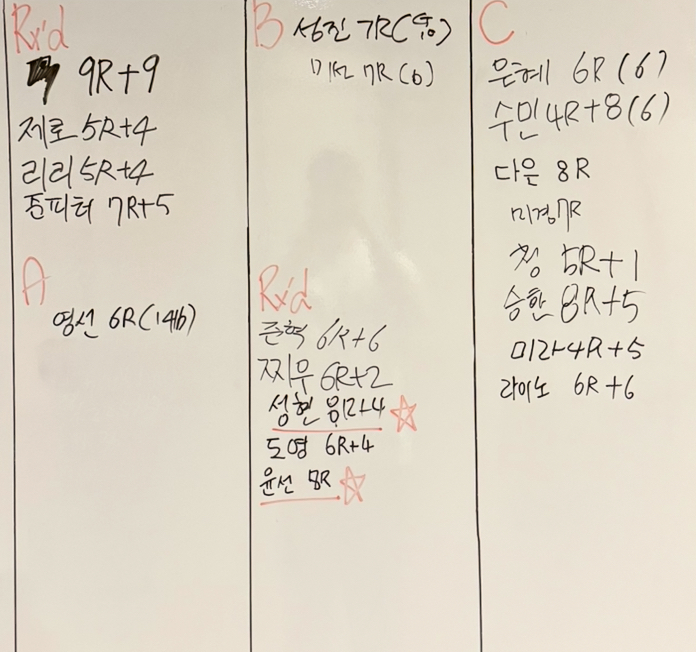 Rx'd
9R+9
제로 5R+4
리리 5R+4
존피터 7R+5
A
영선 6R(14lb)
B
성진 7R
미선 7R(6)
Rx'd
준혁 6R+6
찌무 6R+2
성현
도영 6R+4
윤선 8R
C
은혜 6R(6)
수민 4R+8(6)
다은 8R
미경 7R
청 5R+1
승한 8R+5
미라 4R+5
라이노 6R+6